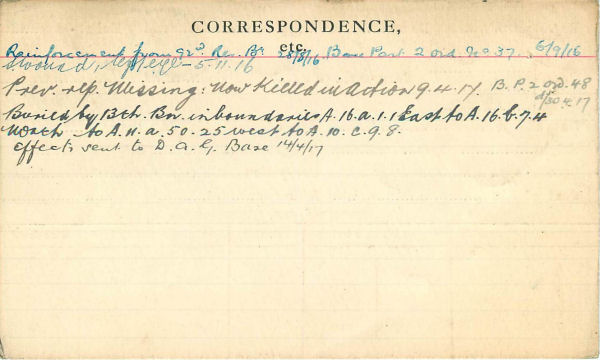 CORRESPONDENCE,
etc.
Reinforcement from 92d. Res. Bn. 28/8/16 Base Part 2 ord. No 37. 6/9/16
Wound, 5-11-16
Prev. rep. Missing: Now Killed in Action 9.4.17. B.P. 2 ord. 48
d/30.4.17
Buried by 13th. Bn. in boundaries A.16.a.1.1 East to A.16.b.7.4
North to A.11.a.50.25 west to A.10.c.9.8.
Effects sent to D.A.G. Base 14/4/17